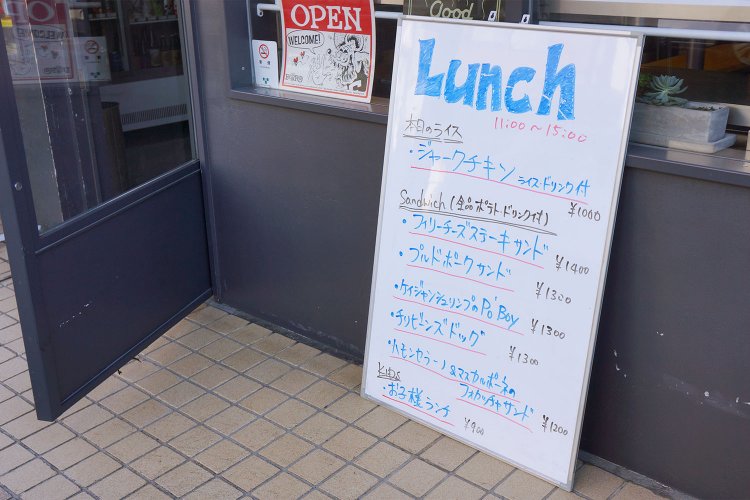 Good
OPEN
WELCOME!
Lunch
11:00~15:00
本日のライス
・ジャークチキン ライス・ドリンク付
¥1000
Sandwich (全品ポテト・ドリンク付)
・フィリーチーズステーキサンド
¥1400
・プルドポークサンド
¥1300
・ケイジャンシュリンプのPo'Boy
¥1300
・チリビーンズドッグ
¥1300
・ハモンセラーノ&マスカルポーネの
フォカッチャサンド
¥1200
Kids
・お子様ランチ
¥900